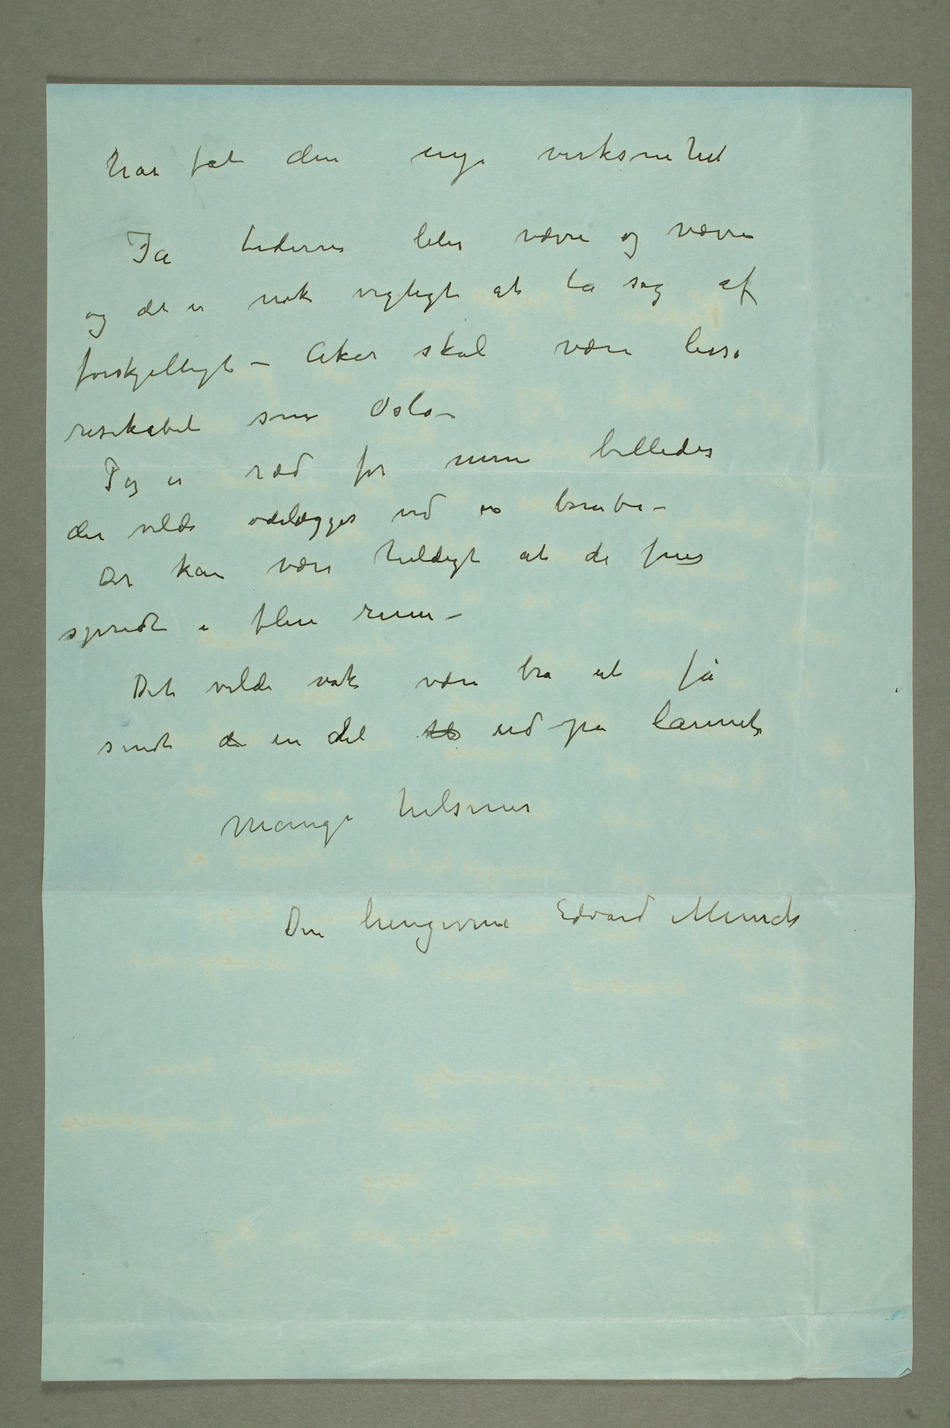 har fåt den nye virksomhet
Ja tiderne blir værre og værre
og det er nok vigtigt at ta sig af
forskjelligt – Aker skal være liså
resikabelt som Oslo –
Jeg er ræd for mine billeder
der vilde ødelægges ved en bombe –
Det kan være heldigt at de fins
spredt i flere rum –
Det vilde nok være bra at få
sendt en del ud på landet
Mange hilsener
Din hengivne Edvard Munch